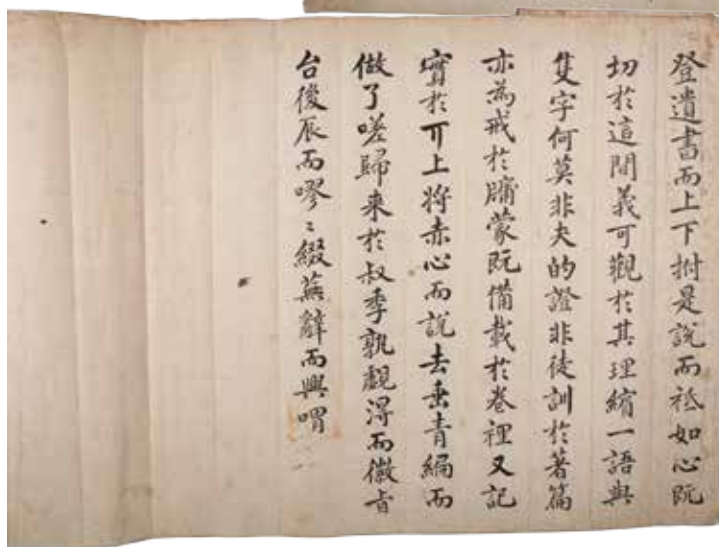 登遺書而上下拊是說而祗如心阮
切於這間義可觀於其理繽一語與
隻字何莫非夫的證非徒訓於著篇
亦為戒於牖蒙旣備載於卷裡又記
實於丌上將赤心而說去垂青編而
做了嗟歸来於叔季孰覰淂而徵旨
台後辰而嘐〻綴蕪辭而興喟